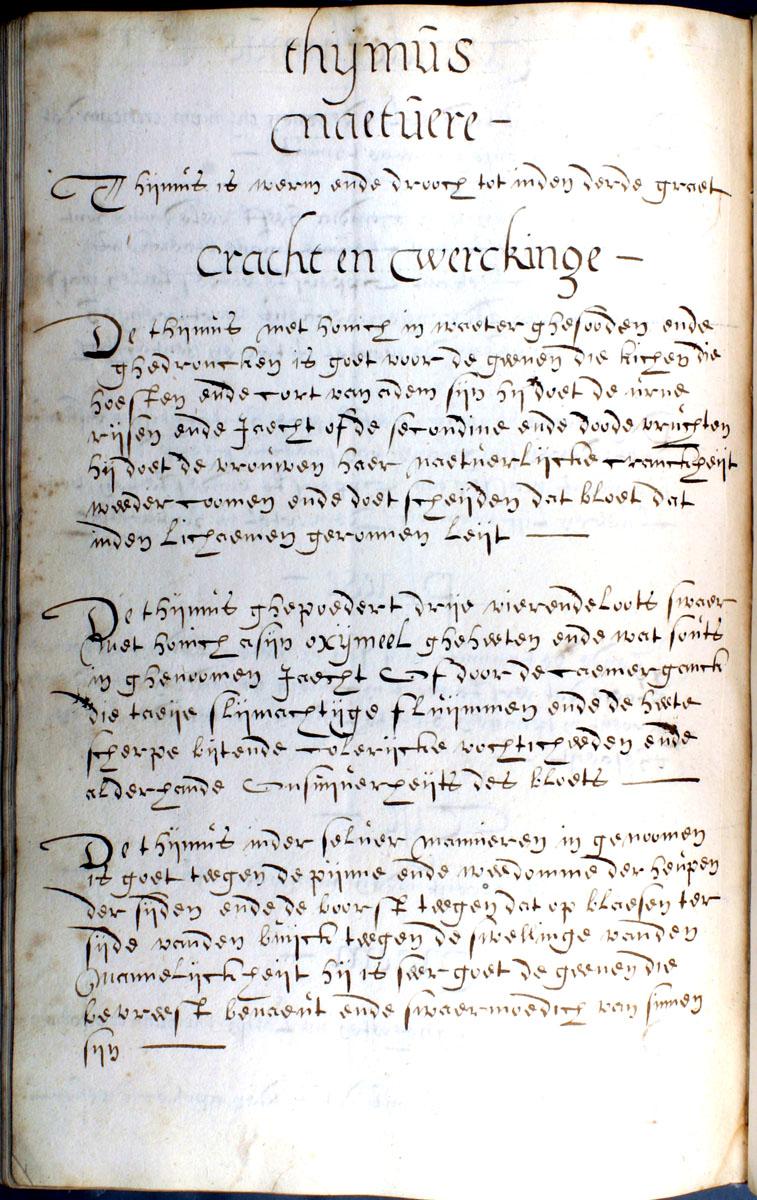 thijmus
Naetuere –
Thijmus is werm ende drooch tot inden derde graet
Cracht en Werckinge –
De thijmus met honich in waeter ghesooden ende
ghedroncken is goet voor de geenen die kichen die
hoesten ende cort van adem sijn hij doet de urine
rijsen ende Jaecht of de secondine ende doode vruchten
hij doet de vrouwen haer naetuerlijcke cranckheijt
weeder coomen ende doet scheijden dat bloet dat
inden lichaemen geronnen leijt —
De thijmus ghepoedert drije vierendeloots swaer
Met honich asijn oxijmeel gheheeten ende wat souts
in ghenoomen Jaecht Of door de caemerganck
die taeije slijmachtijge fluijmmen ende de heete
scherpe bijtende colerijcke vochticheeden ende
alderhande Onsuijverheijts des bloets —
De thijmus inder selver mannieren in genoomen
is goet teegen de pijnne ende weedomme der heupen
der sijden ende de boorst teegen dat op blaesen ter
sijde vanden buijck teegen de swellinge vanden
Mannelijckheijt hij is seer goet de geenen die
bevreest benaeut ende swaermoedich van sinnen
sijn —